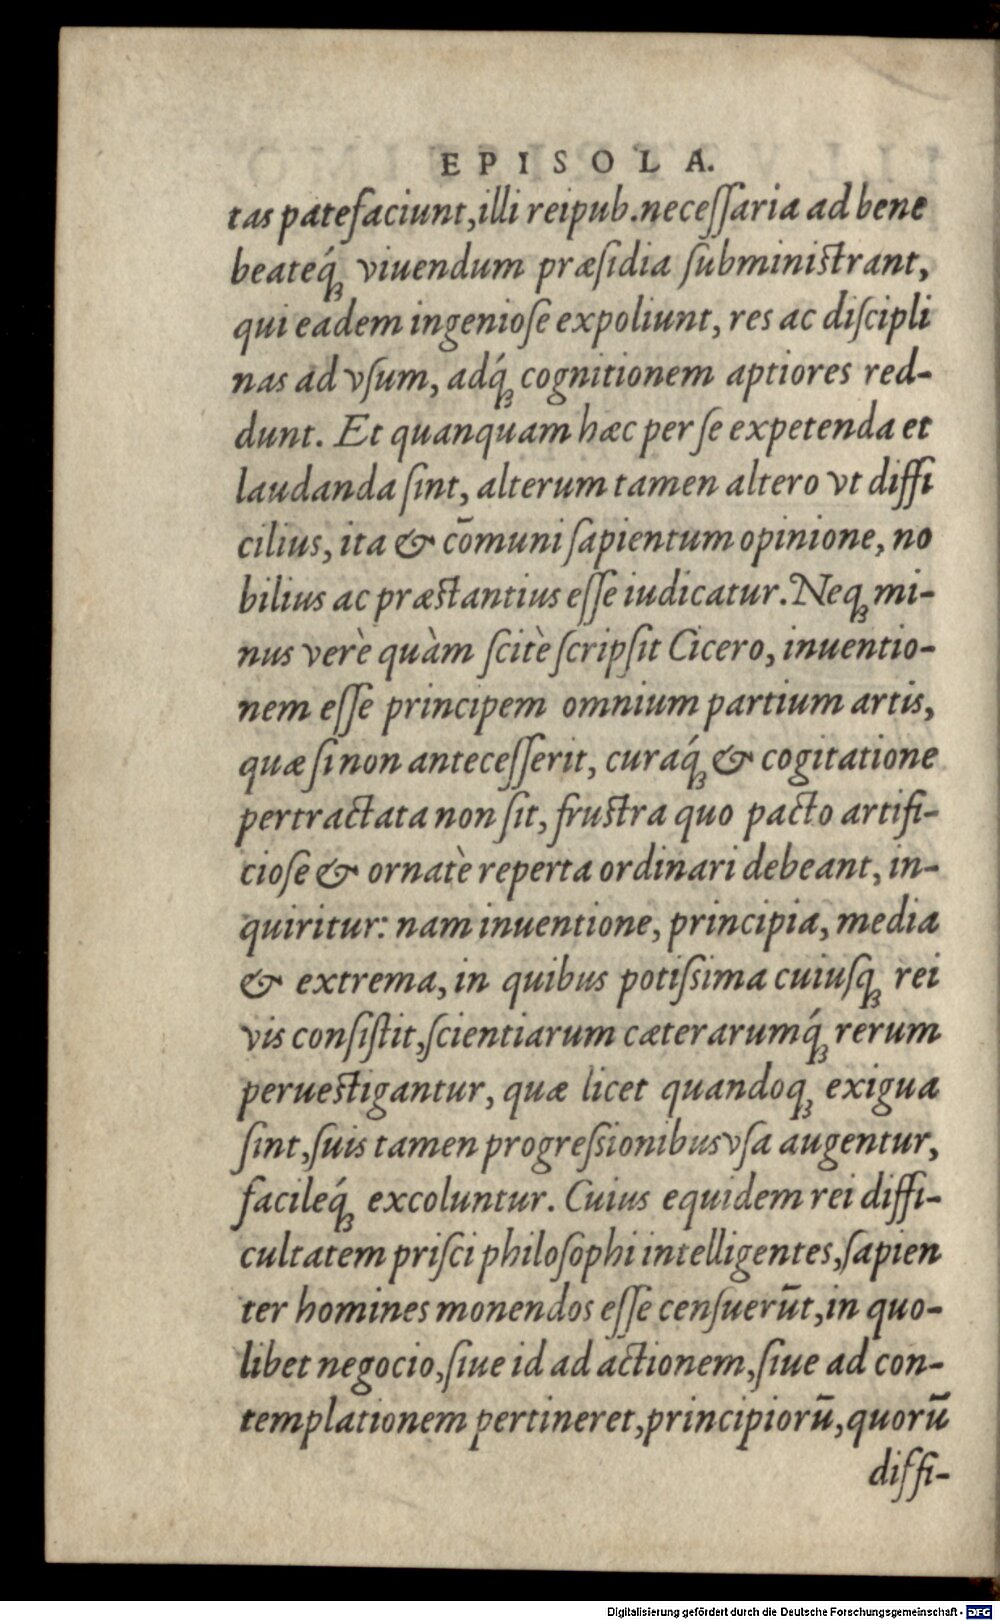 EPISOLA.
tas patefaciunt, illi reipub. neceſſaria ad bene
beateq́ꝫ viuendum præſidia ſubminiſtrant,
qui eadem ingenioſe expoliunt, res ac diſcipli
nas ad vſum, adq́ꝫ cognitionem aptiores red-
dunt. Et quanquam hæc per ſe expetenda et
laudanda ſint, alterum tamen altero vt diffi
cilius, ita & cōmuni ſapientum opinione, no
bilius ac præſtantius eſſe iudicatur. Neqꝫ mi-
nus verè quàm ſcitè ſcripſit Cicero, inuentio-
nem eſſe principem omnium partium artis,
quæ ſi non anteceſſerit, curaq́ꝫ & cogitatione
pertractata non ſit, fruſtra quo pacto artifi-
cioſe & ornatè reperta ordinari debeant, in-
quiritur: nam inuentione, principia, media
& extrema, in quibus potiſsima cuiuſqꝫ rei
vis conſiſtit, ſcientiarum cæterarumq́ꝫ rerum
perueſtigantur, quæ licet quandoqꝫ exigua
ſint, ſuis tamen progreſsionibus vſa augentur,
facileq́ꝫ excoluntur. Cuius equidem rei diffi-
cultatem priſci philoſophi intelligentes, ſapien
ter homines monendos eſſe cenſuerūt, in quo-
libet negocio, ſiue id ad actionem, ſiue ad con-
templationem pertineret, principiorū, quorū
diffi-
Digitalisierung gefördert durch die Deutsche Forschungsgemeinschaft - DFG